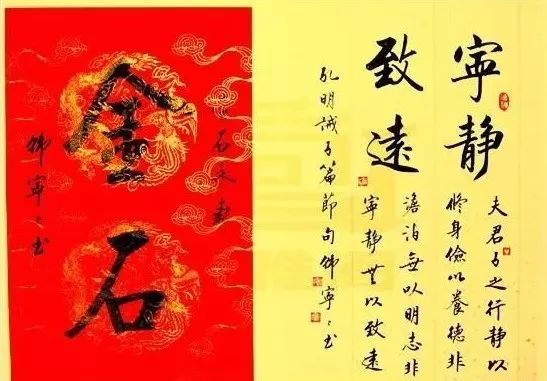 寧靜
致遠
夫君子之行靜以
修身儉以養德非
澹泊無以明志非
寧靜無以致遠
孔明誡子篇節句 寧〻书
石文
金石
寧〻书